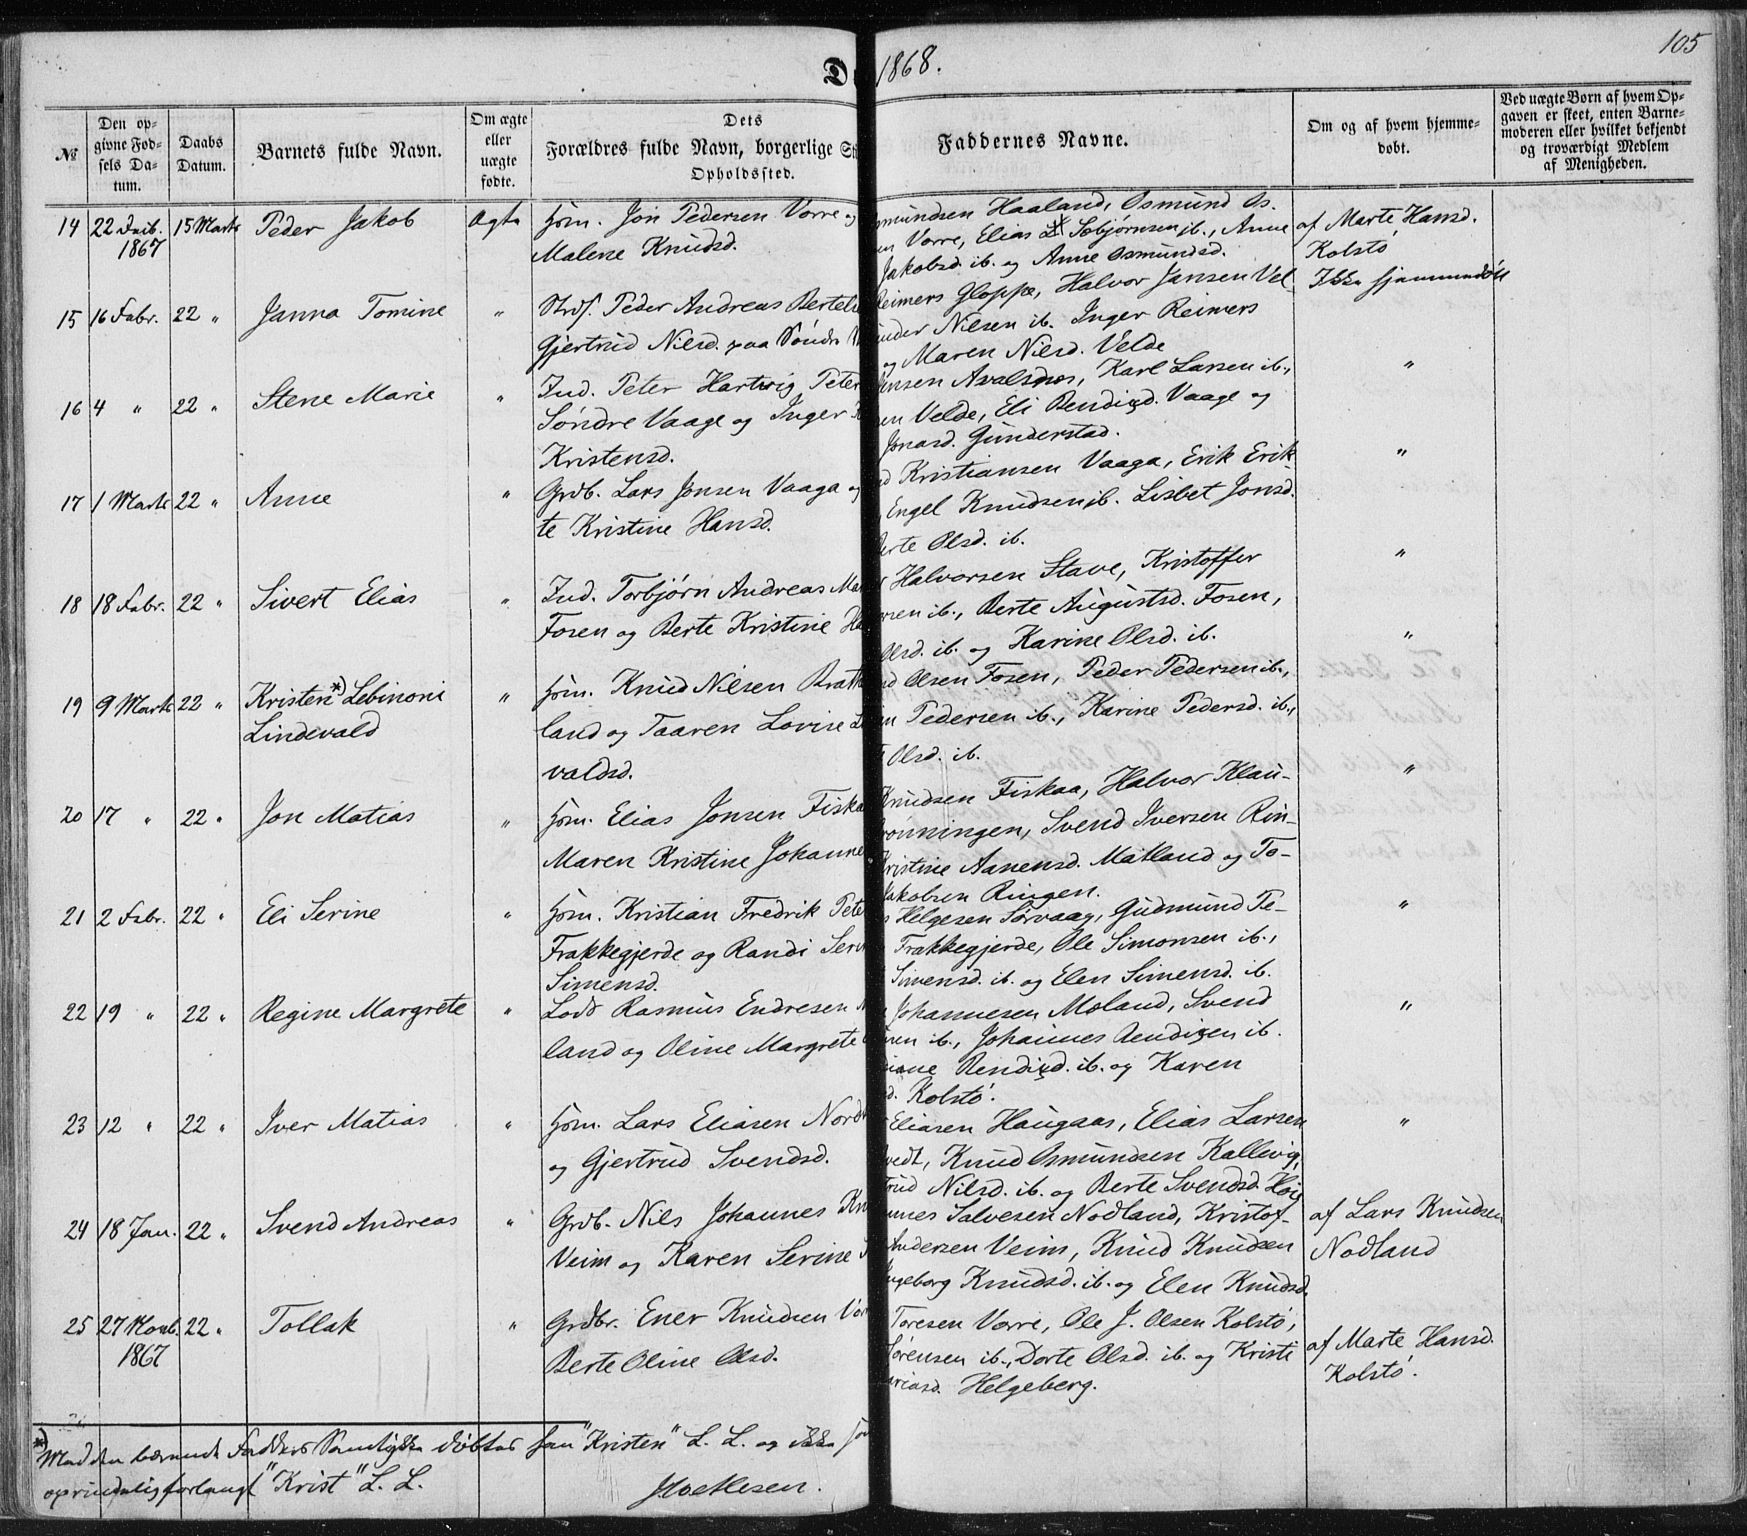 105
D 1868.
№
Den op-
givne Fød-
sels Da-
tum.
Daabs
Datum.
Barnets fulde Navn.
Om ægte
eller
uægte
fødte.
Dets
Forældres fulde Navn, borgerlige St
Opholdssted.
Faddernes Navne.
Om og af hvem hjemme-
døbt.
Ved uægte Børn af hvem Op-
gaven er skeet, enten Barne-
moderen eller hvilket bekjendt
og troværdigt Medlem
af Menigheden.
14 22 Dcb. 15 Marts Peder Jakob Ægte Hsm. Jon Pedersen Vorre og
1867 Malene Knudsd.
smundsen Haaland, Osmund Os-
en Vorre, Elias Esbjørnsen ib., Anne
Jakobsd. ib. og Anne Osmundsd.
af Marte Hansd.
Kolstø
15 16 Febr. 22 " Janna Tomine " Strdf. Peder Andreas Bertels
Gjertrud Nilsd. paa Søndre V
Reimers Gloppe, Halvor Jansen Vel-
under Nilsen ib. Inger Reimers
og Maren Nilsd. Velde
Ikke hjemmedøbt
16 4 " 22 " Stene Marie " Ind. Peter Hartvig Peter
Søndre Vaage og Inger
Kristensd.
ensen Avalsnes, Karl Larsen ib.,
en Velde, Eli Bendixd. Vaage og
Jonasd. Gunderstad.
"
17 1 Marts 22 " Anne " Grdb. Lars Jonsen Vaaga og
te Kristine Hansd.
d Kristiansen Vaaga, Erik Erik-
Engel Knudsen ib. Lisbet Jonsd.
erte Olsd. ib.
"
18 18 Febr. 22 " Sivert Elias " Ind. Torbjørn Andreas Ma
Fosen og Berte Kristine Ha
Halvorsen Stave, Kristoffer
rsen ib., Berte Augustsd. Fosen,
Olsd. ib. og Karine Olsd. ib.
"
19 9 Marts 22 " Kristen *) Lebinoni " Hsm. Knud Nilsen Brat
Lindevald land og Taaren Lovise L
valdsd.
d Olsen Fosen, Peder Pedersen ib.,
en Pedersen ib., Karine Pedersd. ib.,
Olsd. ib.
"
20 17 " 22 " Jon Matias " Hsm. Elias Jonsen Fiska
Maren Kristine Johanne
Knudsen Fiskaa, Halvor Klau-
rønningen, Svend Iversen Rin-
ristine Aanensd. Matland og To-
Jakobsen Ringen.
"
21 2 Febr. 22 " Eli Serine " Hsm. Kristian Fredrik Pete
Frakkegjerde og Randi Seri
Simensd.
s Helgesen Sørvaag, Gudmund Pe-
Frakkegjerde, Ole Simonsen ib.,
Simensd. ib. og Elen Simensd. ib.
"
22 19 " 22 " Regine Margrete " Lods Rasmus Endresen
land og Oline Margrete
Johannesen Moland, Svend
sen ib., Johannes Bendixen ib.
iane Bendixd. ib. og Karen
d. Kolstø.
"
23 12 " 22 " Iver Matias " Hsm. Lars Eliasen Nord
og Gjertrud Svendsd.
Eliasen Haugaas, Elias Larsen
vedt, Knud Osmundsen Kallevig,
trud Nilsd. ib. og Berte Svendsd. Høie
"
24 18 Jan. 22 " Svend Andreas " Grdb. Nils Johannes Kn
Veim og Karen Serine
nnes Salvesen Nodland, Kristof-
Andersen Veim, Knud Knudsen
ngeborg Knudsd. ib. og Elen Knudsd.
af Lars Knudsen
Nodland
25 27 Novb. 22 " Tollak " Grdbr. Ener Knudsen Vor
1867 Berte Oline Olsd.
Toresen Vorre, Ole J. Olsen Kolstø,
Sørensen ib., Dorte Olsd. ib. og Kristi
ariasd. Helgeberg.
af Marte Hansd.
Kolstø.
*) Med den bærende Fadders Samtykke døbtes han "Kristen" L. L. og ikke so
oprindelig forlangt "Krist" L. L.